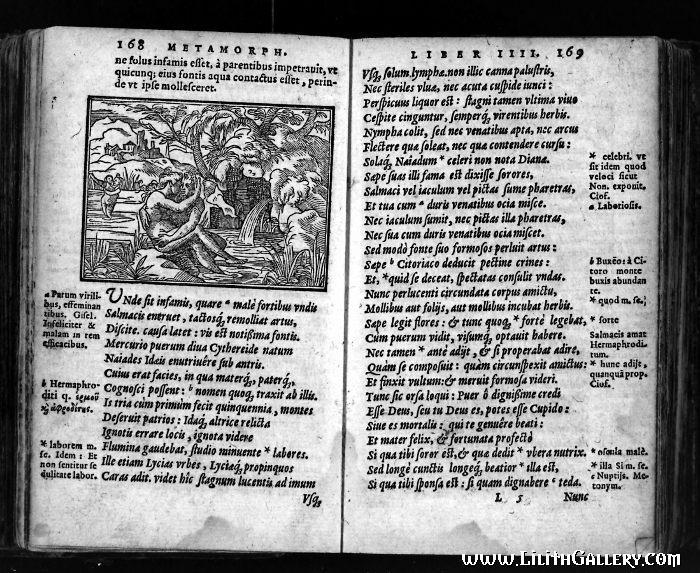 168 METAMORPH.
ne solus infamis esset, à parentibus impetrauit, vt
quicunq; eius fontis aqua contactus esset, perin-
de vt ipse mollesceret.
a Parum virili-
bus, effeminan
tibus. Gisel.
Infeliciter &
malam in rem
efficacibus.
b Hermaphro-
diti q. ἑρμοῦ
ἀφροδίτης.
* laborem m.
se. Idem: Et
non sentitur se
dulitate labor.
VNde sit infamis, quare a malè fortibus vndis
Salmacis eneruet, tactosq; remolliat artus,
Discite. causa latet: vis est notissima fontis.
Mercurio puerum diua Cythereide natum
Naiades Idæis enutriuêre sub antris.
Cuius erat facies, in qua materq;, paterq;,
Cognosci possent: b nomen quoq; traxit ab illis.
Is tria cùm primùm fecit quinquennia, montes
Deseruit patrios: Idaq; altrice relicta
Ignotis errare locis, ignota videre
Flumina gaudebat, studio minuente * labores.
Ille etiam Lycias vrbes, Lyciaq; propinquos
Caras adit. videt hîc stagnum lucentis ad imum
Vsq;
LIBER IIII. 169
Vsq; solum lymphæ. non illic canna palustris,
Nec steriles vluæ, nec acuta cuspide iunci:
Perspicuus liquor est: stagni tamen vltima viuo
Cespite cinguntur, semperq; virentibus herbis.
Nympha colit, sed nec venatibus apta, nec arcus
Flectere quæ soleat, nec quæ contendere cursu:
Solaq; Naiadum * celeri non nota Dianæ.
Sæpe suas illi fama est dixisse sorores,
Salmaci vel iaculum vel pictas sume pharetras,
Et tua cum a duris venatibus ocia misce.
Nec iaculum sumit, nec pictas illa pharetras,
Nec sua cum duris venatibus ocia miscet.
Sed modò fonte suo formosos perluit artus:
Sæpe b Citoriaco deducit pectine crines:
Et, * quid se deceat, spectatas consulit vndas.
Nunc perlucenti circundata corpus amictu,
Mollibus aut folijs, aut mollibus incubat herbis.
Sæpe legit flores: & tunc quoq; * fortè legebat,
Cùm puerum vidit, visumq; optauit habere.
Nec tamen * antè adijt, & si properabat adire,
Quàm se composuit: quàm circunspexit amictus:
Et finxit vultum: & meruit formosa videri.
Tunc sic orsa loqui: Puer ô dignissime credi
Esse Deus, seu tu Deus es, potes esse Cupido:
Siue es mortalis: qui te genuêre beati:
Et mater felix, & fortunata profectò
Si qua tibi soror est, & quæ dedit * vbera nutrix.
Sed longè cunctis longeq; beatior * illa est,
Si qua tibi sponsa est: si quam dignabere c teda.
L 5 Nunc
* celebri. vt
sit idem quod
veloci sicut
Non. exponit.
Ciof.
a Laboriosis.
b Buxeo: à Ci-
toro monte
buxis abundan
te.
* quod m. se.
* forte
Salmacis amat
Hermaphrodi-
tum.
* hunc adijt,
quanquã prop.
Ciof.
* oscula malè.
* illa Si m. se.
c Nuptijs. Me-
tonym.
www.LilithGallery.com